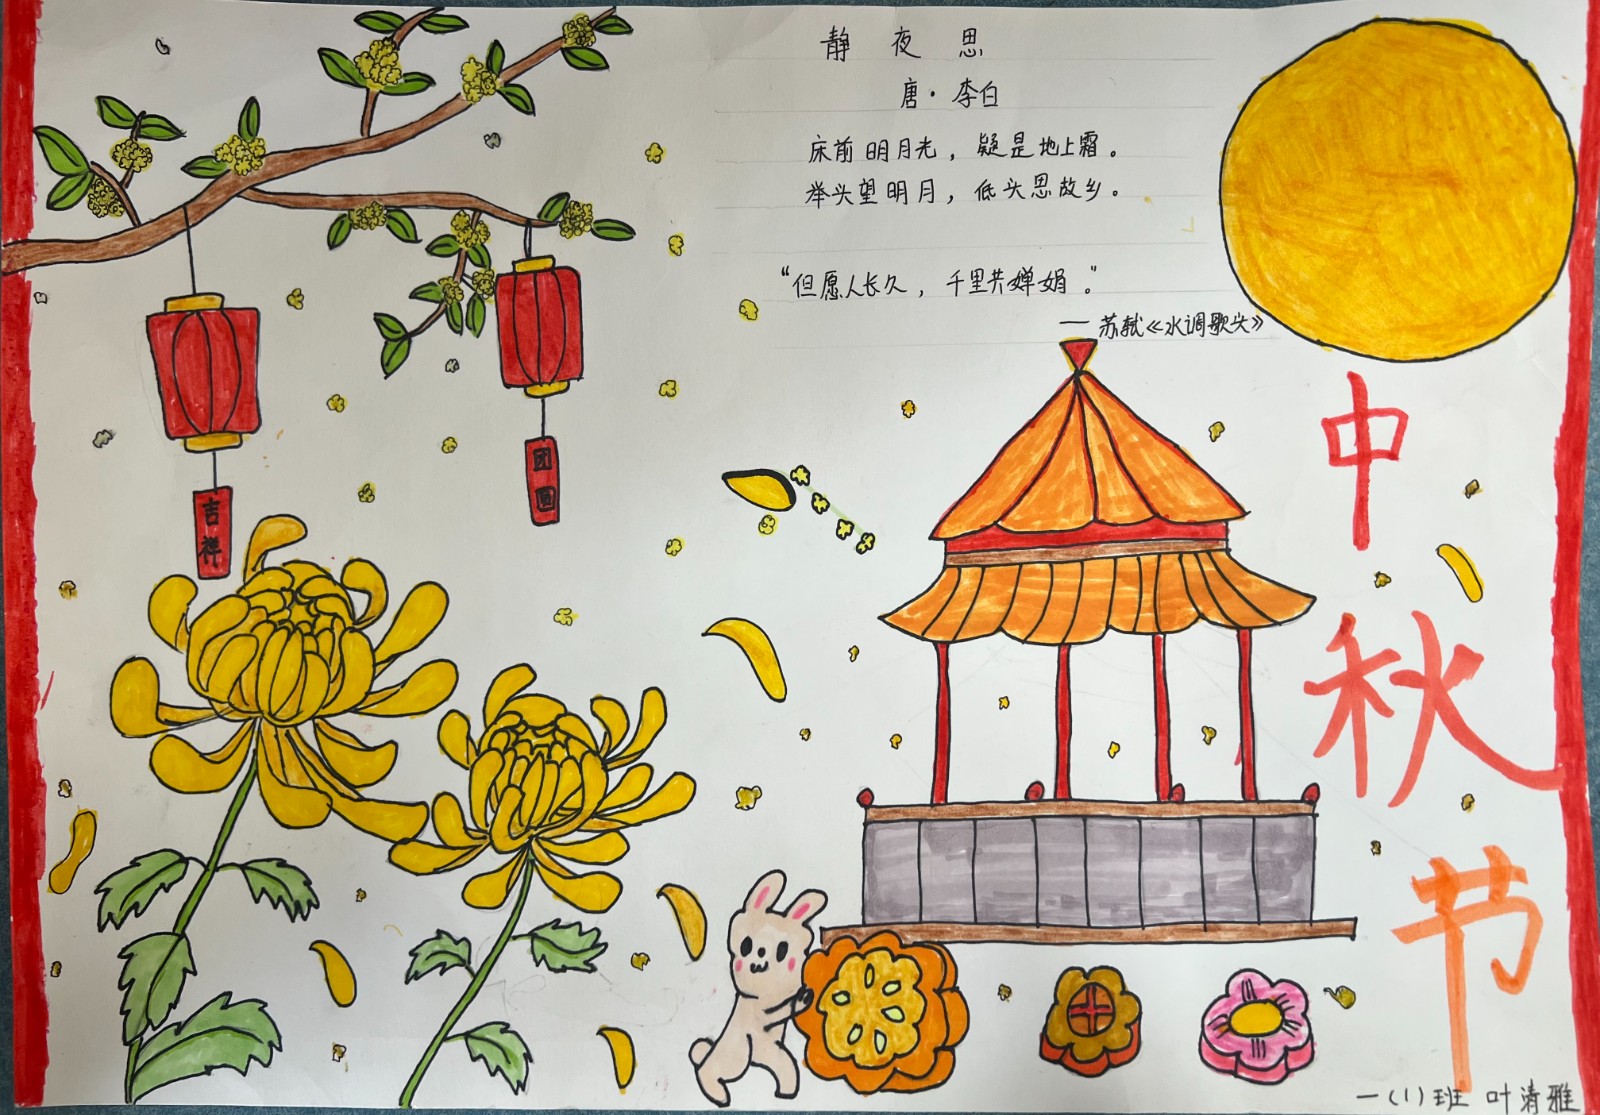 静夜思
唐·李白
床前明月光，疑是地上霜。
举头望明月，低头思故乡。
“但愿人长久，千里共婵娟。”
— 苏轼《水调歌头》
吉祥
团圆
中秋节
一(1)班 叶清雅